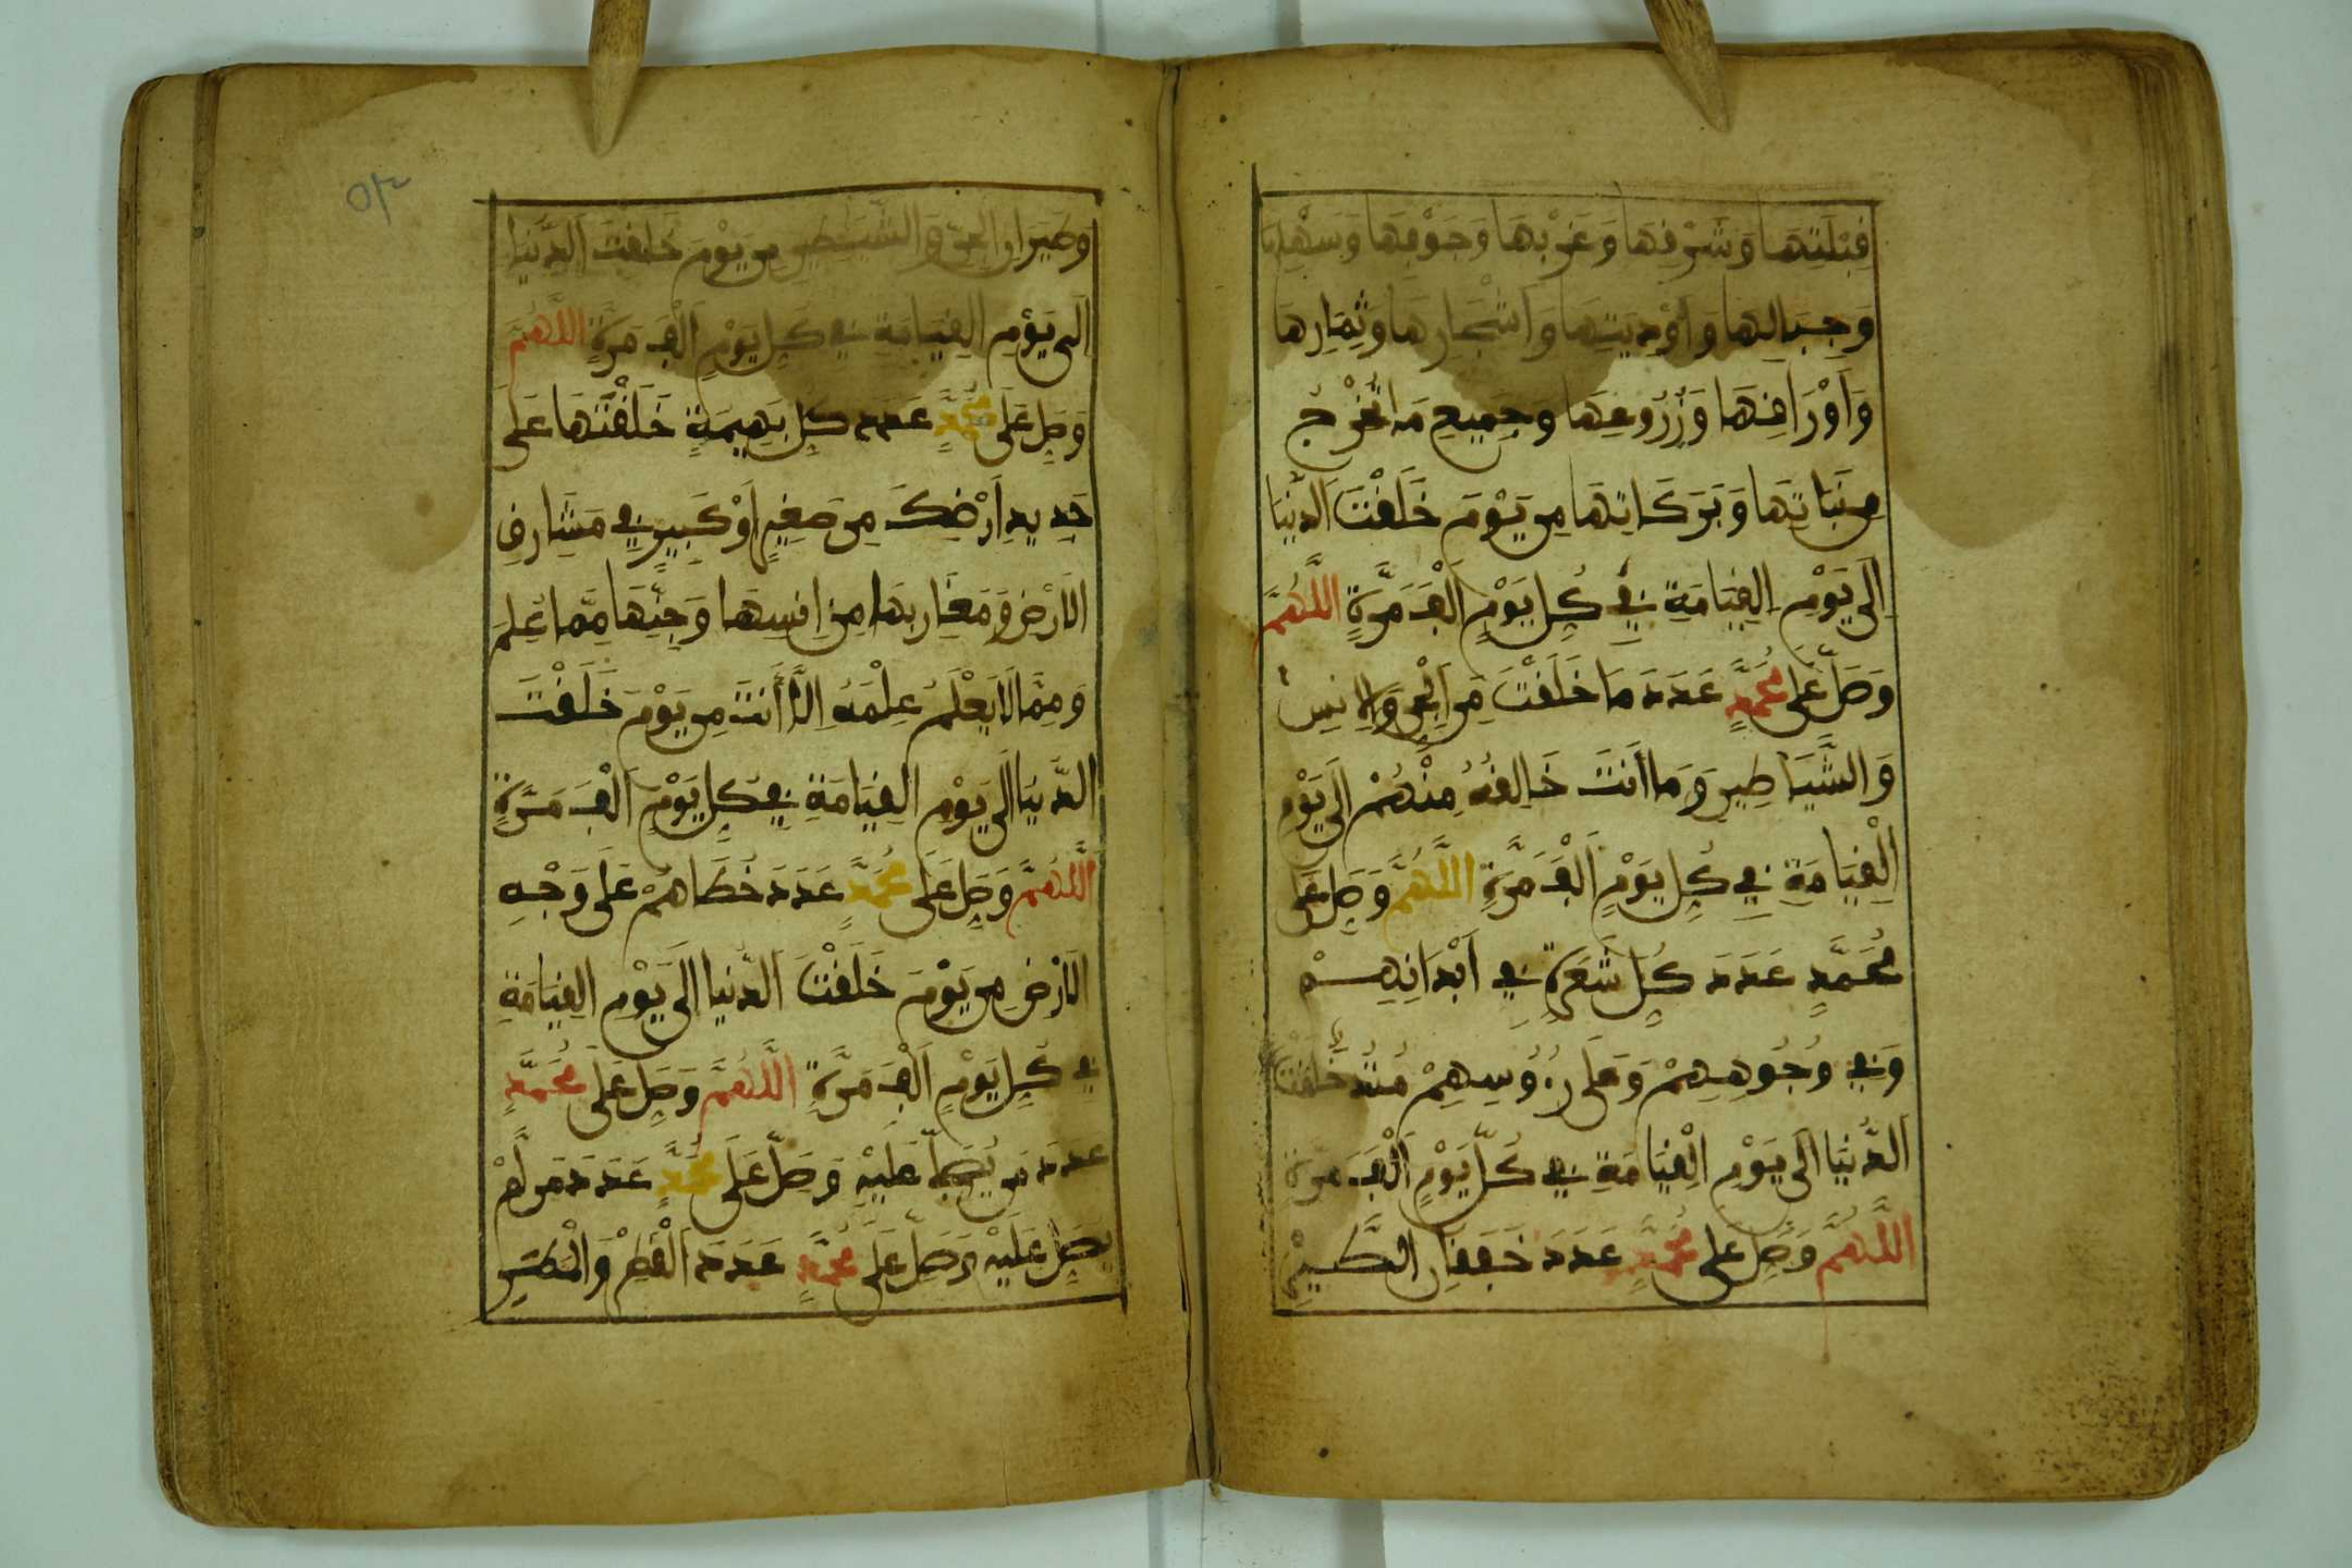 قِبْلَتِهَا وَشَرْقِهَا وَغَرْبِهَا وَجَوْفِهَا وَسَهْلِهَا
وَجِبَالِهَا وَأَوْدِيَتِهَا وَأَشْجَارِهَا وَثِمَارِهَا
وَأَوْرَاقِهَا وَزُرُوعِهَا وَجَمِيعِ مَا تُخْرِجُ
مِن نَبَاتِهَا وَبَرَكَاتِهَا مِن يَوْمَ خَلَقْتَ الدُّنْيَا
إِلَى يَوْمِ الْقِيَامَةِ فِي كُلِّ يَوْمٍ أَلْفَ مَرَّةٍ اللَّهُمَّ
وَصَلِّ عَلَى مُحَمَّدٍ عَدَدَ مَا خَلَقْتَ مِنَ الْجِنِّ وَالْإِنسِ
وَالشَّيَاطِينِ وَمَا أَنتَ خَالِقُهُ مِنْهُمْ إِلَى يَوْمِ
الْقِيَامَةِ فِي كُلِّ يَوْمٍ أَلْفَ مَرَّةٍ اللَّهُمَّ وَصَلِّ عَلَى
مُحَمَّدٍ عَدَدَ كُلِّ شَعَرَةٍ فِي أَبْدَانِهِمْ
وَفِي وُجُوهِهِمْ وَعَلَى رُءُوسِهِمْ مُنْذُ خَلَقْتَ
الدُّنْيَا إِلَى يَوْمِ الْقِيَامَةِ فِي كُلِّ يَوْمٍ أَلْفَ مَرَّةٍ
اللَّهُمَّ وَصَلِّ عَلَى مُحَمَّدٍ عَدَدَ خَفَقَانِ الطَّيْرِ
وَطَيَرَانِ الْجِنِّ وَالشَّيَاطِينِ مِن يَوْمَ خَلَقْتَ الدُّنْيَا
إِلَى يَوْمِ الْقِيَامَةِ فِي كُلِّ يَوْمٍ أَلْفَ مَرَّةٍ اللَّهُمَّ
وَصَلِّ عَلَى مُحَمَّدٍ عَدَدَ كُلِّ بَهِيمَةٍ خَلَقْتَهَا عَلَى
جَدِيدِ أَرْضِكَ مِن صَغِيرٍ أَوْ كَبِيرٍ فِي مَشَارِقِ
الْأَرْضِ وَمَغَارِبِهَا مِنْ إِنسِهَا وَجِنِّهَا مِمَّا عُلِمَ
وَمِمَّا لَا يَعْلَمُ عِلْمَهُ إِلَّا أَنتَ مِن يَوْمَ خَلَقْتَ
الدُّنْيَا إِلَى يَوْمِ الْقِيَامَةِ فِي كُلِّ يَوْمٍ أَلْفَ مَرَّةٍ
اللَّهُمَّ وَصَلِّ عَلَى مُحَمَّدٍ عَدَدَ خُطَاهُمْ عَلَى وَجْهِ
الْأَرْضِ مِن يَوْمَ خَلَقْتَ الدُّنْيَا إِلَى يَوْمِ الْقِيَامَةِ
فِي كُلِّ يَوْمٍ أَلْفَ مَرَّةٍ اللَّهُمَّ وَصَلِّ عَلَى مُحَمَّدٍ
عَدَدَ مَن يُصَلِّي عَلَيْهِ وَصَلِّ عَلَى مُحَمَّدٍ عَدَدَ مَن لَّمْ
يُصَلِّ عَلَيْهِ وَصَلِّ عَلَى مُحَمَّدٍ عَدَدَ الْقَطْرِ وَالْمَطَرِ